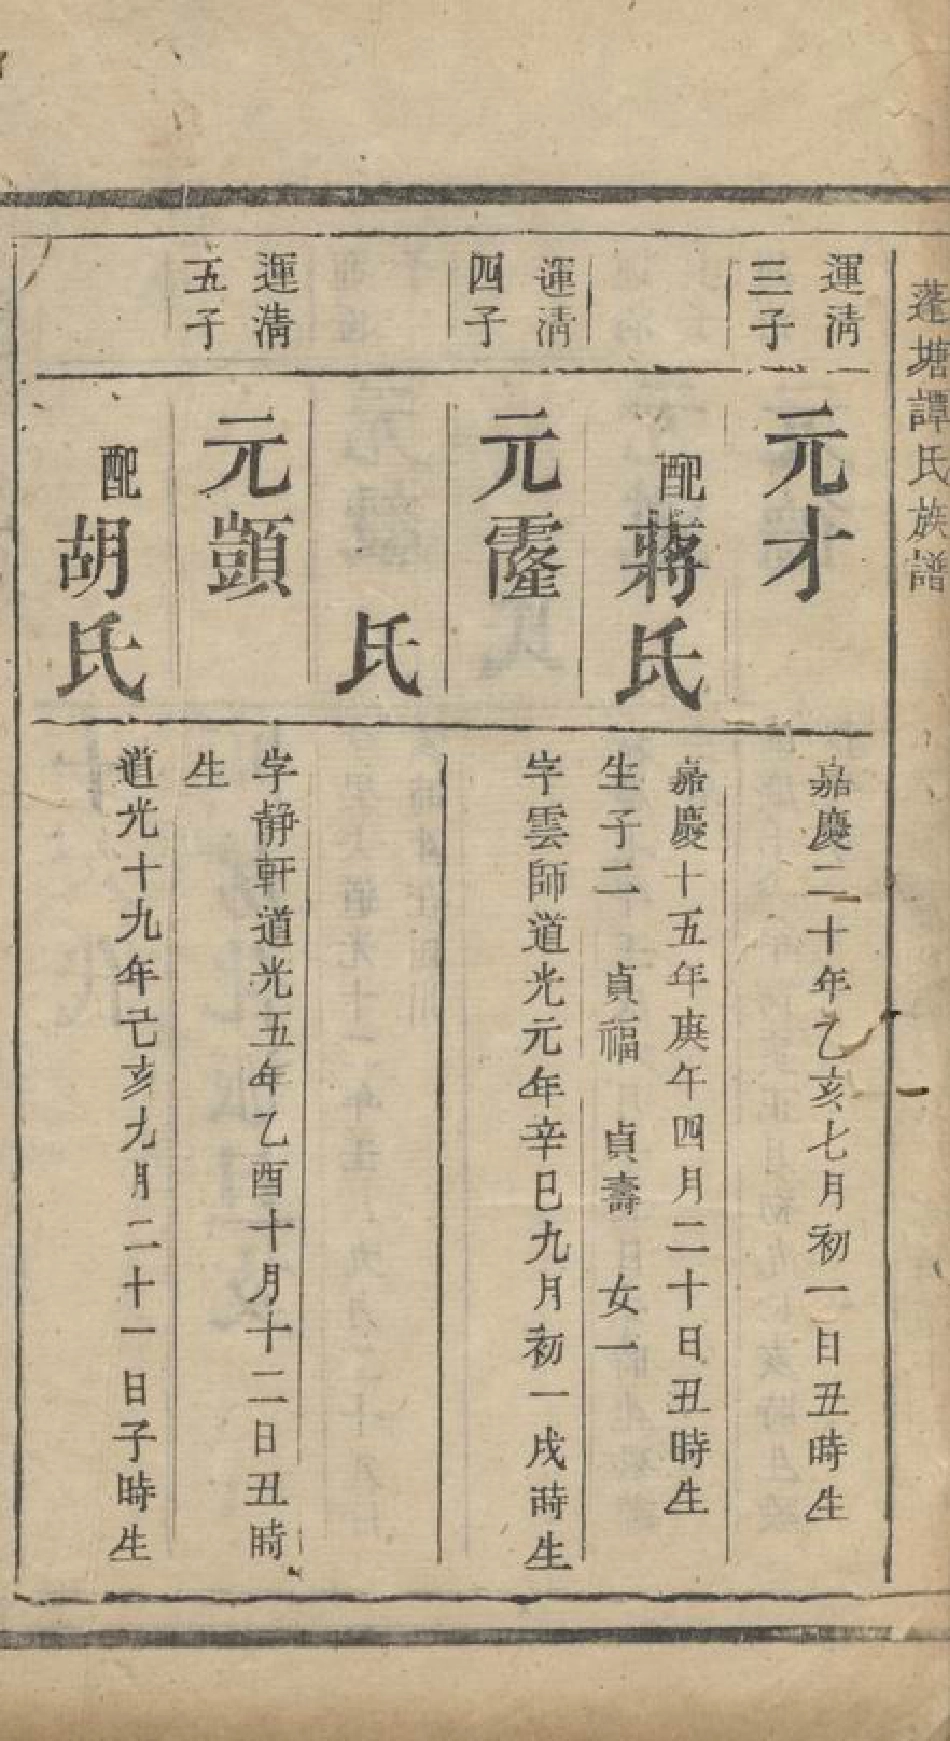 蓬塘譚氏族譜
運淸
三子
元才
嘉慶二十年乙亥七月初一日丑時生
配蔣氏
嘉慶十五年庚午四月二十日丑時生
生子二 貞福 貞壽 女一
運淸
四子
元霳
字雲師道光元年辛巳九月初一戌時生
氏
運淸
五子
元顗
字靜軒道光五年乙酉十月十二日丑時
生
配胡氏
道光十九年己亥九月二十一日子時生